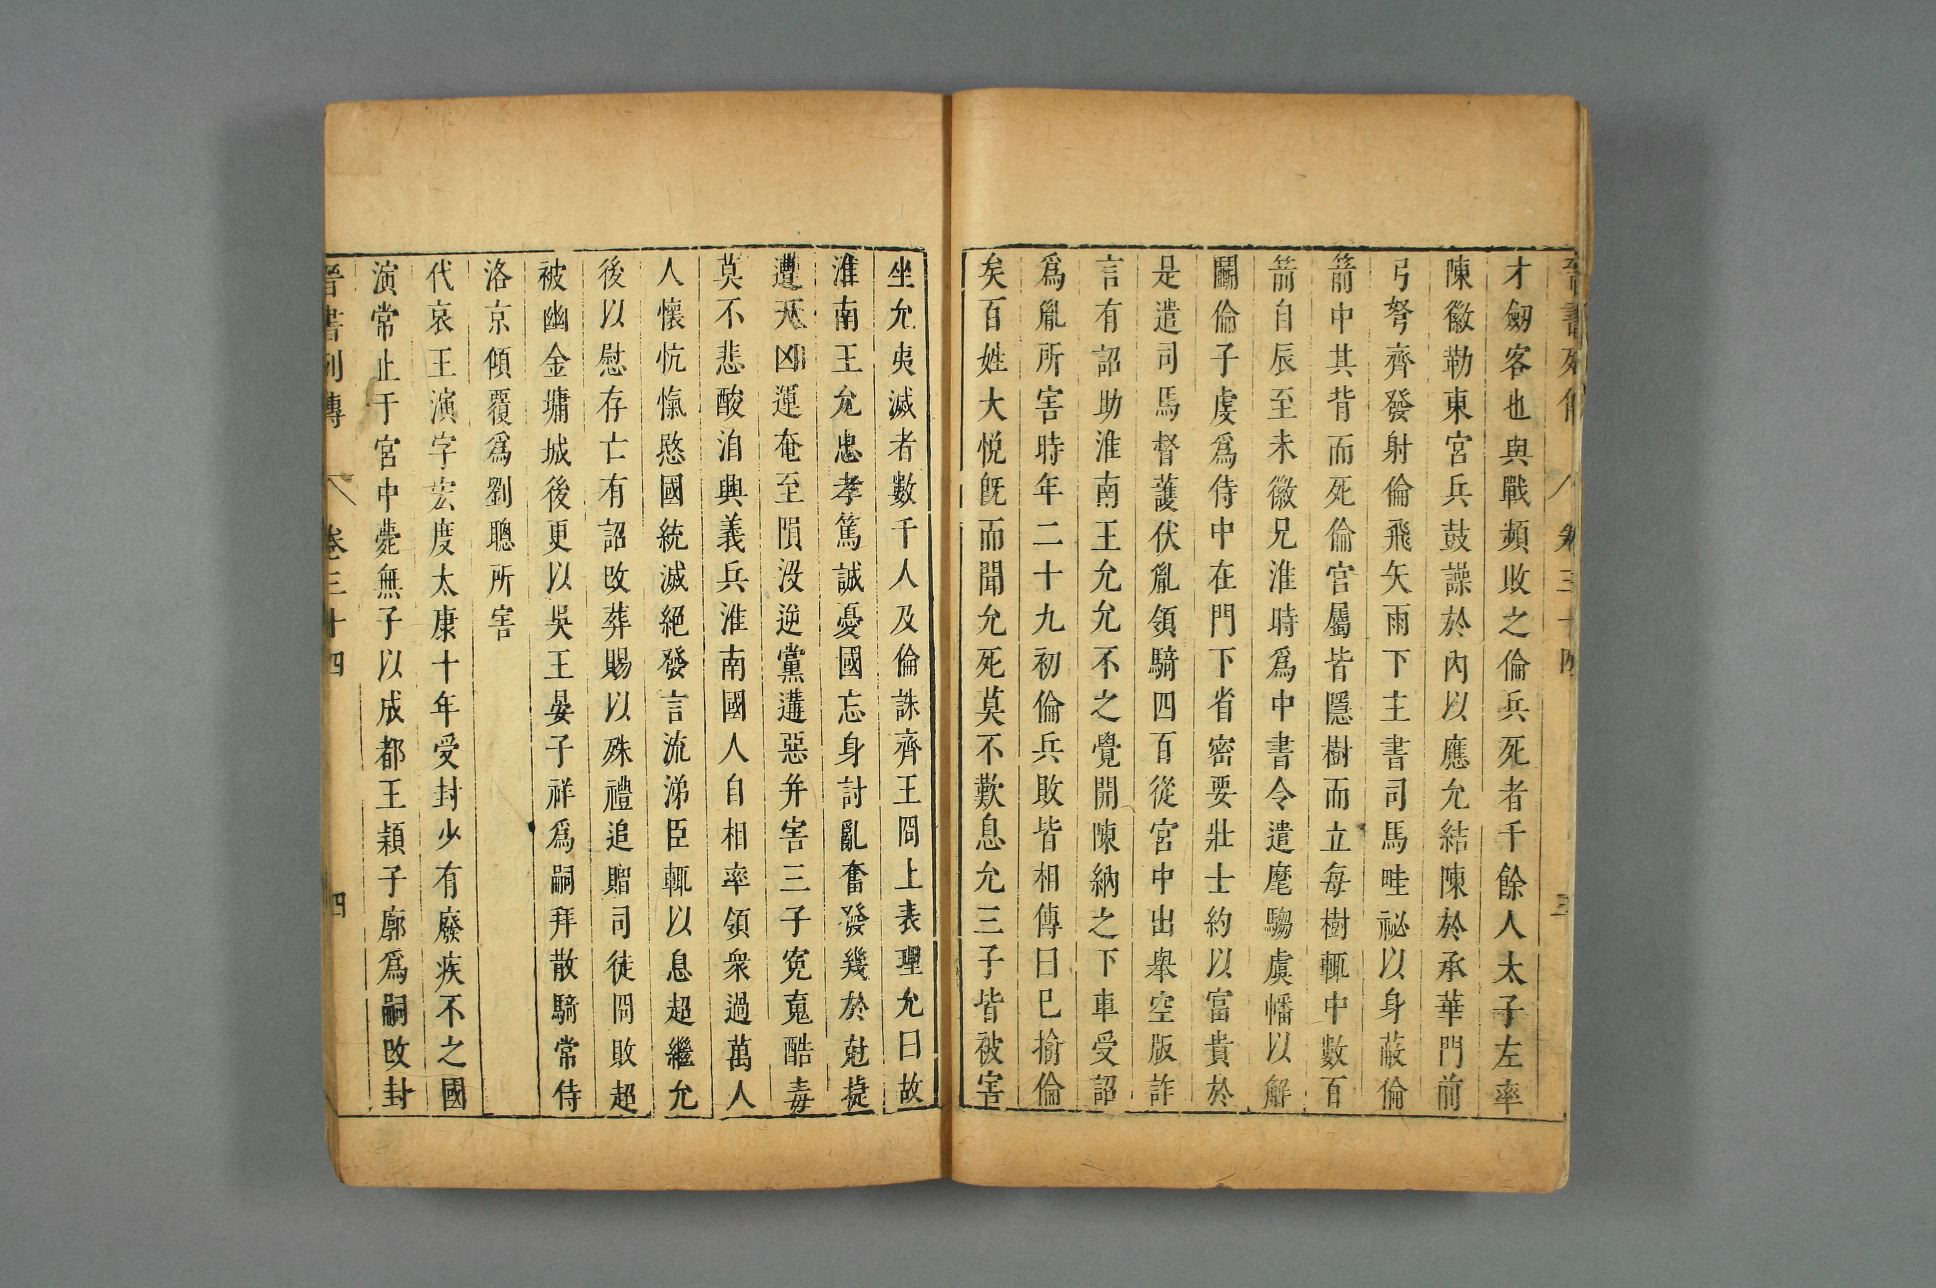 晉書列傳 卷三十四 三
才劒客也與戰頻敗之倫兵死者千餘人太子左率
陳徽勒東宮兵鼓譟於內以應允結陳於承華門前
弓弩齊發射倫飛矢雨下主書司馬畦祕以身蔽倫
箭中其背而死倫官屬皆隱樹而立每樹輒中數百
箭自辰至未徽兄淮時爲中書令遣麾騶虞幡以解
鬭倫子虔爲侍中在門下省密要壯士約以富貴於
是遣司馬督護伏胤領騎四百從宮中出舉空版詐
言有詔助淮南王允允不之覺開陳納之下車受詔
爲胤所害時年二十九初倫兵敗皆相傳曰已擒倫
矣百姓大悅旣而聞允死莫不歎息允三子皆被害
坐允夷滅者數千人及倫誅齊王冏上表理允曰故
淮南王允忠孝篤誠憂國忘身討亂奮發幾於尅捷
遭天凶運奄至隕沒逆黨遘惡并害三子冤䰟酷毒
莫不悲酸洎興義兵淮南國人自相率領衆過萬人
人懷忼愾愍國統滅絕發言流涕臣輒以息超繼允
後以慰存亡有詔改葬賜以殊禮追贈司徒冏敗超
被幽金墉城後更以吳王晏子祥爲嗣拜散騎常侍
洛京傾覆爲劉聰所害
代哀王演字宏度太康十年受封少有廢疾不之國
演常止于宮中薨無子以成都王穎子廓爲嗣改封
晉書列傳 卷三十四 四